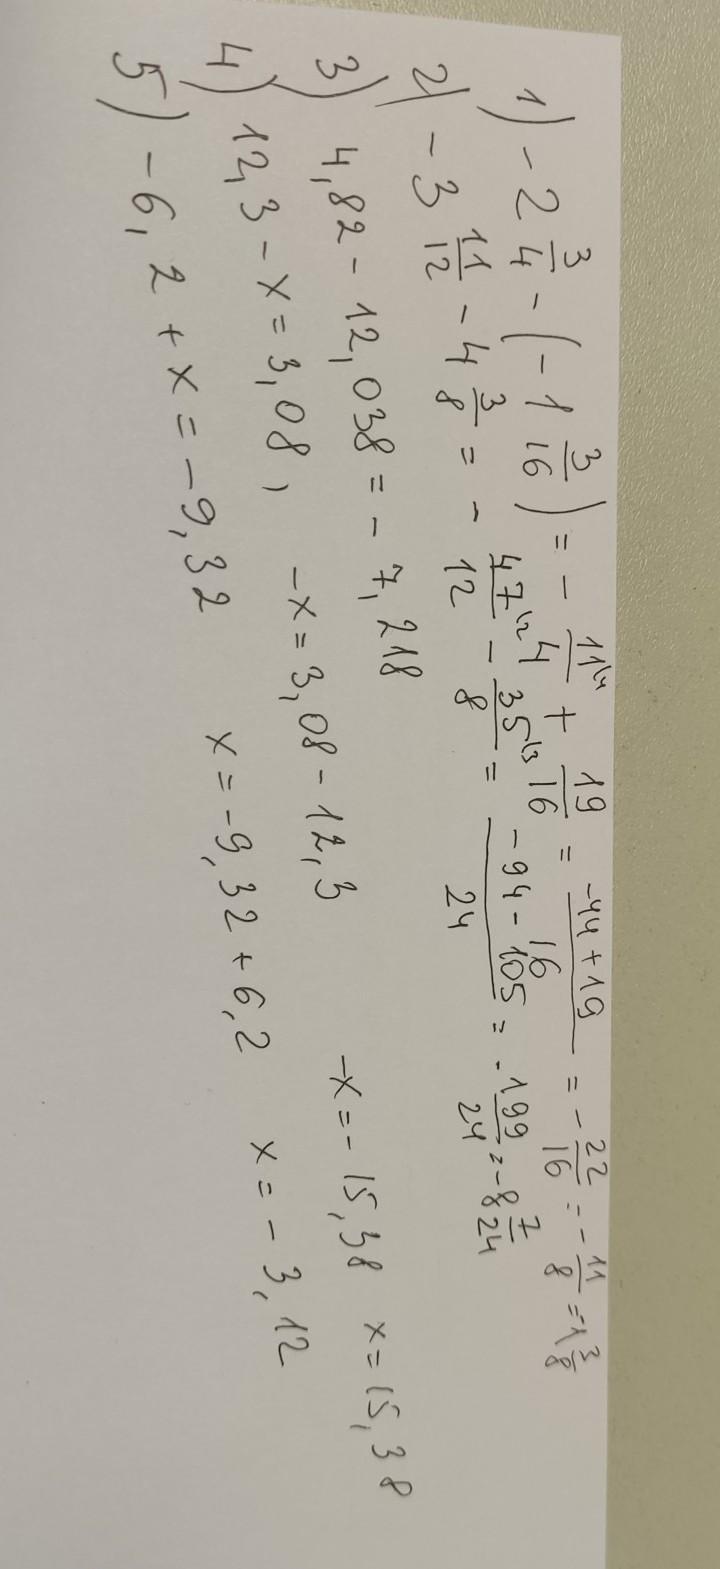 1) -2 3/4 - (-1 3/16) = - 11\4/4 + 19/16 = -44+19/16 = - 22/16 = - 11/8 = -1 3/8
2) -3 11/12 - 4 3/8 = - 47\2/12 - 35\3/8 = -94-105/24 = - 199/24 = -8 7/24
3) 4,82 - 12,038 = - 7,218
4) 12,3 - x = 3,08, -x = 3,08 - 12,3 -x = - 15,38 x = 15,38
5) -6,2 + x = -9,32 x = -9,32 + 6,2 x = - 3,12